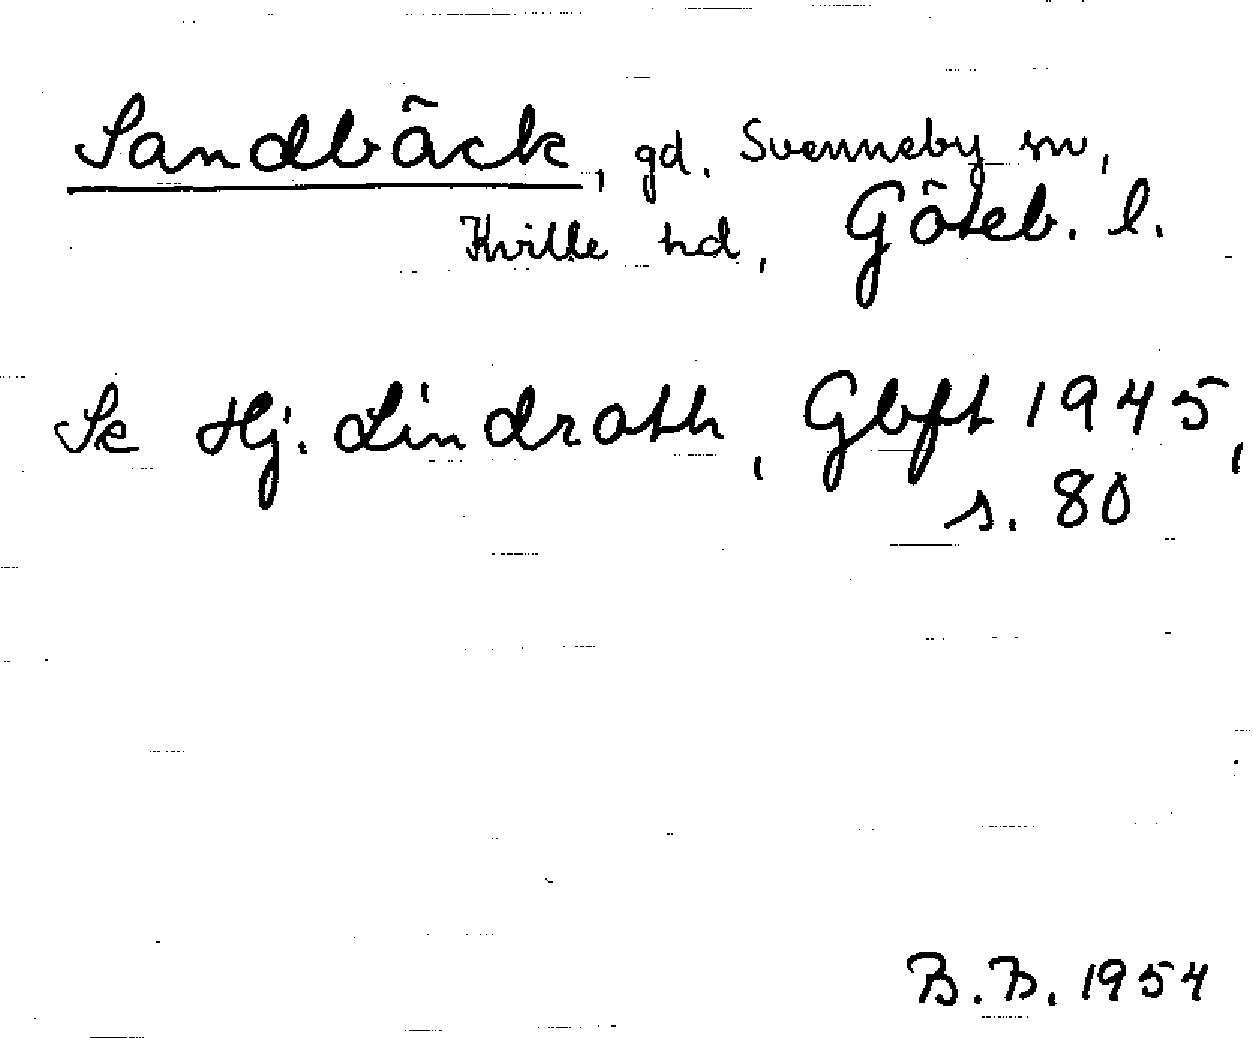 Sandbäck, gd. Svenneby sn,
Kville hd, Göteb. l.
Se Hj. Lindroth, Gbft 1945,
s. 80
B.B. 1954